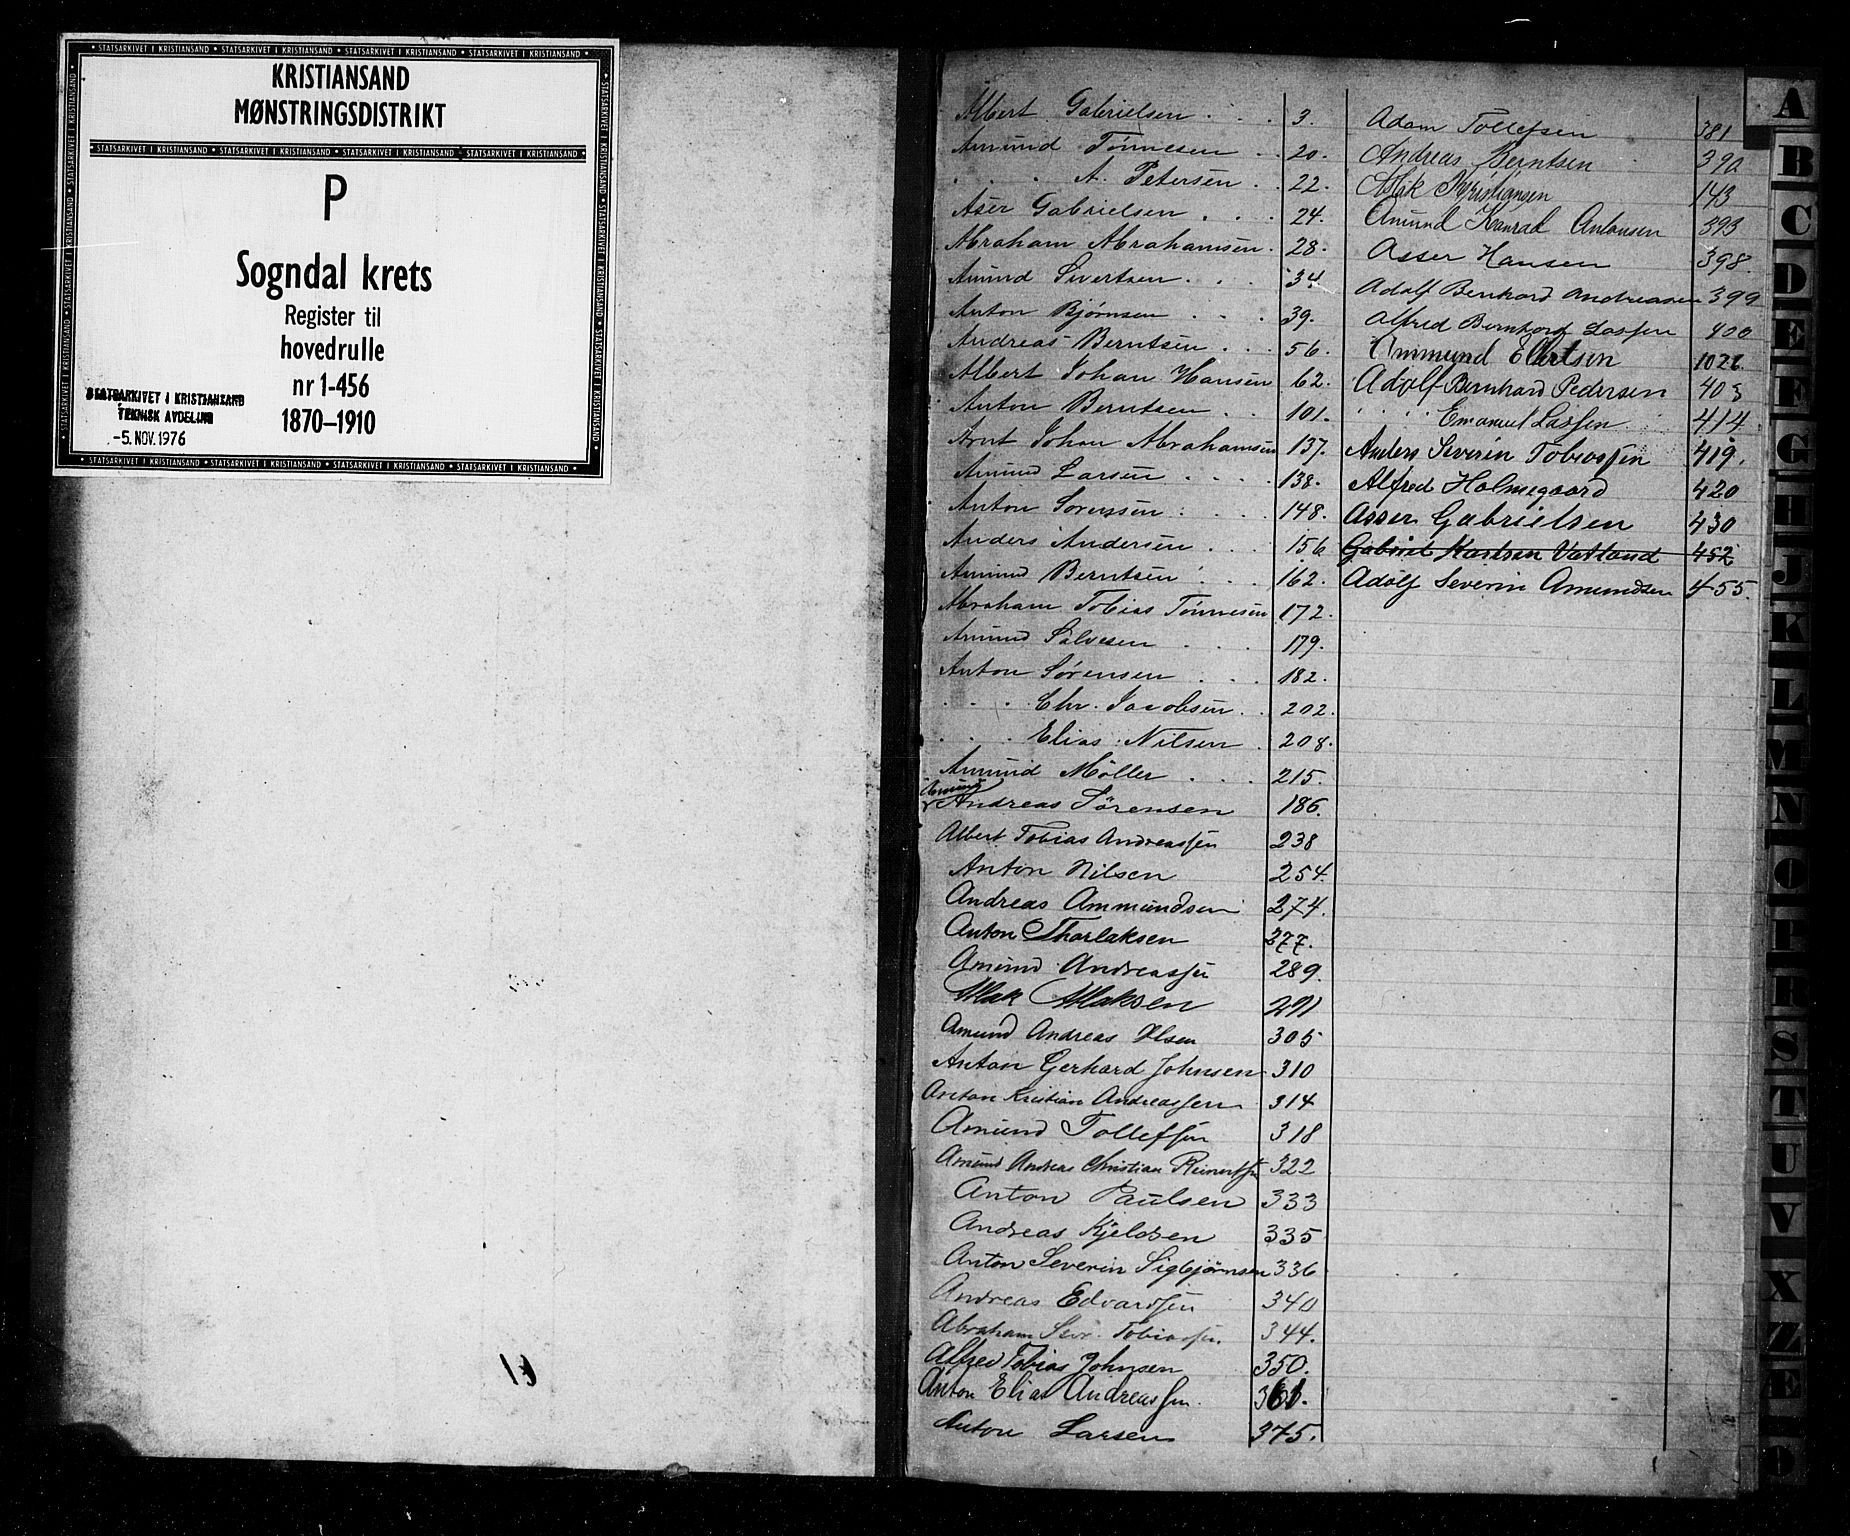 KRISTIANSAND
MØNSTRINGSDISTRIKT
P
Sogndal krets
Register til
hovedrulle
nr 1-456
1870–1910
STATSARKIVET I KRISTIANSAND
TEKNISK AVDELING
-5. NOV. 1976
Albert Gabrielsen . . . 3.
Amund Tønnesen . . 20.
. . . A. Petersen . . 22.
Aser Gabrielsen . . . 24.
Abraham Abrahamsen . 28.
Amund Sivertsen . . . 34
Anton Bjørnsen . . . 39.
Andreas Berntsen . . . 56.
Albert Johan Hansen 62.
Anton Berntsen . . . 101.
Arnt Johan Abrahamsen 137.
Amund Larsen . . . . 138.
Anton Sørensen . . . . 148.
Anders Andersen . . . 156
Amund Berntsen . . . 162.
Abraham Tobias Tønnesen 172.
Amund Salvesen . . . 179.
Anton Sørensen . . . 182.
. . . Chr. Jacobsen . . 202.
. . . Elias Nilsen . 208.
Amund Møller . . . 215.
Amund
Andreas Sørensen 186.
Albert Tobias Andreassen 238
Anton Nilsen 254.
Andreas Ammundsen 274.
Anton Thorlaksen 277.
Amund Andreassen 289.
Atlak Atlaksen 291
Amund Andreas Olsen 305
Anton Gerhard Johnsen 310
Anton Kristian Andreassen 314
Amund Tollefsen 318
Amund Andreas Christian Reinertsen 322
Anton Paulsen 333
Andreas Kjeldsen 335
Anton Severin Sigbjørnsen 336
Andreas Edvardsen 340
Abraham Sevr. Tobiassen 344.
Alfred Tobias Johnsen 350.
Anton Elias Andreassen 361.
Anton Larsen 375.
Adam Tollefsen 381
Andreas Berntsen 390
Kristiansen 143
Amund Konrad Antonsen 393
Asser Hansen 398.
Adolf Bernhard Andreasen 399
Alfred Bernhard Lassen 400
Ammund Elertsen
Adolf Bernhard Pedersen 403
. . . . Emanuel Lassen 414
Anders Severin Tobiassen 419.
Alfred Holmegaard 420
Asser Gabrielsen 430
Gabriel Karlsen Vatland 452
Adolf Severin Amundsen 455.
A
B
C
D
E
F
G
H
J
K
L
M
N
O
P
R
S
T
U
V
X
Z
Æ
Ø